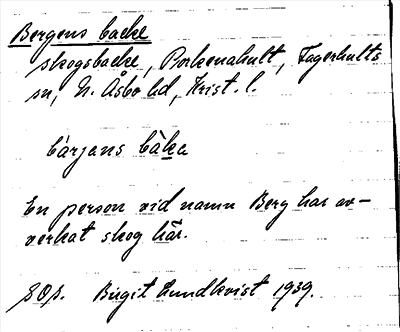 Bergens backe
skogsbacke, Porkenahult, Fagerhults
sn, N. Åsbo hd, Krist. l.
bárjans bàka
En person vid namn Berg har av-
verkat skog här.
SOS. Birgit Lundkvist 1939.